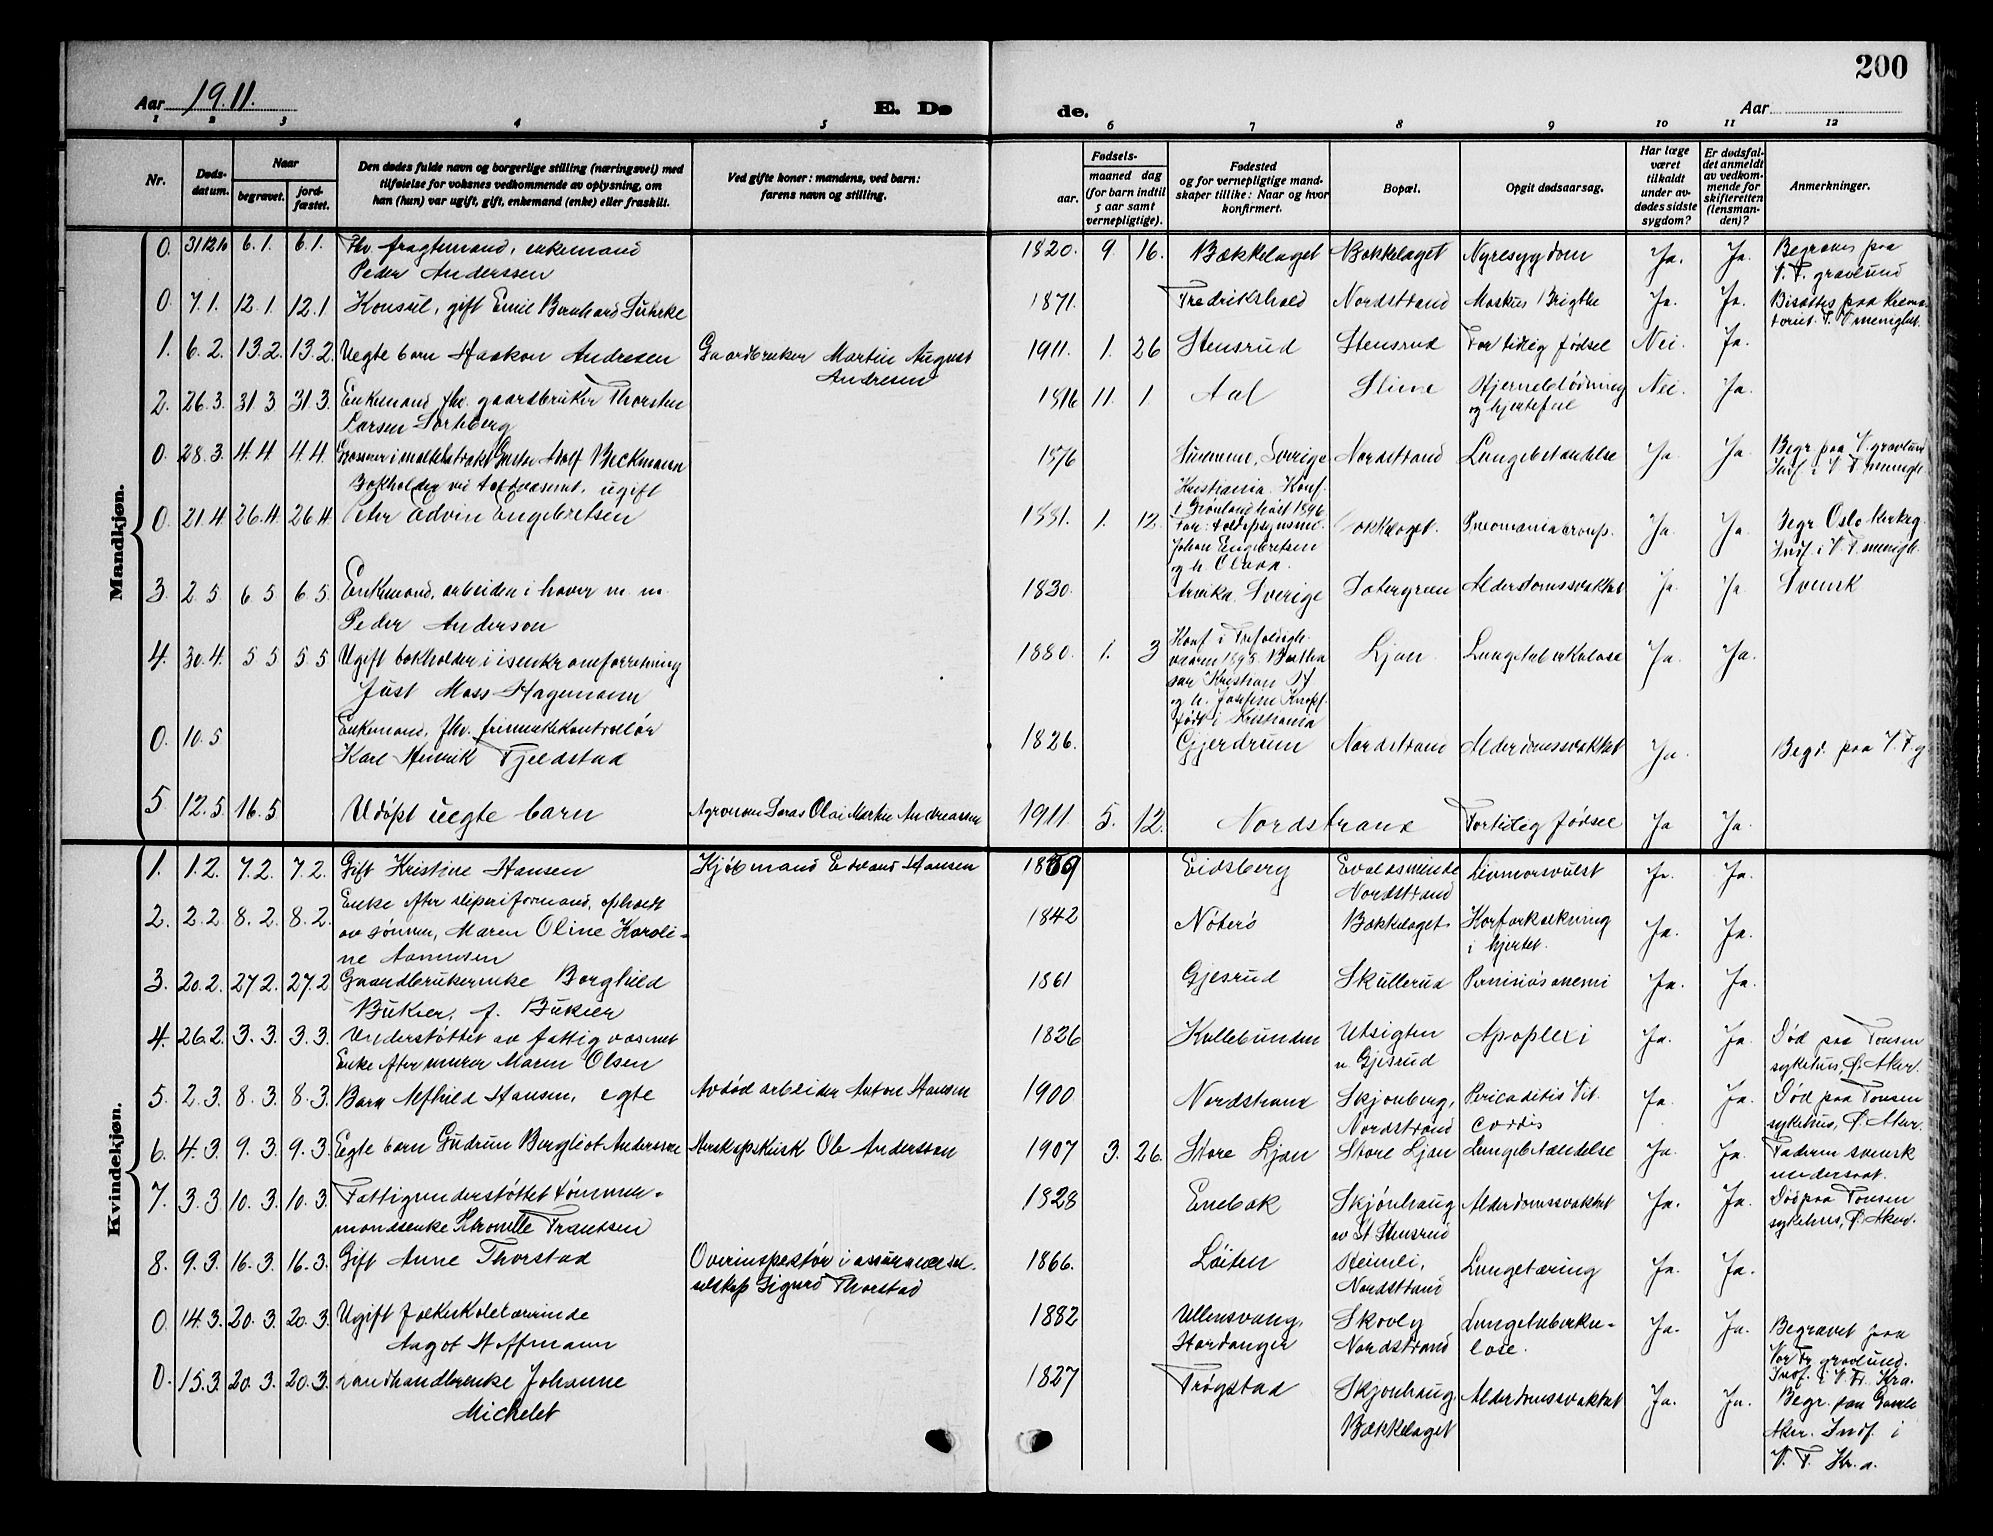 200
Aar 19.11.
E. Dø de.
Aar
1 2 3 4 5 6 7 8 9 10 11 12
Nr.
Døds-
datum.
Naar
begravet.
jord-
fæstet.
Den dødes fulde navn og borgerlige stilling (næringsvei) med
tilføielse for voksnes vedkommende av oplysning, om
han (hun) var ugift, gift, enkemand (enke) eller fraskilt.
Ved gifte koner: mandens, ved barn:
farens navn og stilling.
Fødsels-
aar.
maaned dag
(for barn indtil
5 aar samt
vernepligtige).
Fødested
og for vernepligtige mand-
skaper tillike: Naar og hvor
konfirmert.
Bopæl.
Opgit dødsaarsag.
Har læge
været
tilkaldt
under av-
dødes sidste
sygdom?
Er dødsfal-
det anmeldt
av vedkom-
mende for
skifteretten
(lensman-
den)?
Anmerkninger.
Mandkjøn.
0. 31.12.10 6.1. 6.1. Fhv. fragtemand, enkemand
Peder Anderssen
1820. 9. 16. Bækkelaget Bækkelaget Nyresygdom Ja. Ja. Begraves paa
V. F. gravlund
0. 7.1. 12.1 12.1 Konsul, gift Emil Bernhard
1871. Fredrikshald Nordstrand Ja. Ja. Bisættes paa Krema-
toriet. V. F. menighet.
1. 6.2. 13.2. 13.2. Uegte barn Haakon Andresen Gaardbruker Martin August
Andresen
1911. 1. 26 Stensrud Stensrud For tidlig fødsel Nei. Ja.
2. 26.3. 31.3 31.3. Enkemand fhv. gaardbruker Thorsten
Larsen
1816 11. 1. Aal Hjerneblødning
og hjertefeil Nei. Ja.
0. 28.3. 4.4. 4.4. Adolf Beckmann
1876 Sverige Nordstrand Lungebetændelse Ja. Ja. Begr. paa V. gravlund
Indf. i V. F. menigh.
Bokholder ved toldvæsenet, ugift
0. 21.4. 26.4. 26.4. Peter Edvin Engebretsen
1881. 1. 12. Kristiania. Konf.
i Grønland høst 1896
Far: toldopsynsm.
Johan Engebretsen
og h. Bækkelaget. Pneomonia croup. Ja. Ja. Begr Oslo kirkeg
Indf. i V. F. menigh.
3. 2.5. 6.5 6.5. Enkemand, arbeider i haver m. m.
Peder Anderson
1830. Arvika, Sverige Sætergren Alderdomssvakhet Ja. Ja Svensk
4. 30.4. 5.5 5.5 Ugift bokholder i isenkramforretning
Just Moss Hagemann
1880. 1. 3 Konf. i Trefoldigh.
vaaren 1895.
Kristian
og h. Josefine
født i Kristiania Ljan Lungetuberkulose Ja. Ja.
0. 10.5 Enkemand, fhv. frimerkekontrollør
Karl Henrik Fjeldstad
1826. Gjerdrum Nordstrand Alderdomssvakhet Ja. Begr. paa V. F. g
5 12.5. 16.5 Udøpt uegte barn Agronom Olai Martin Andreassen
1911 5. 12. Nordstrand For tidlig fødsel Ja Ja.
Kvindekjøn.
1. 1.2. 7.2. 7.2. Gift Kristine Hansen Kjøbmand Edvard Hansen
Eidsberg Evaldsminde
Nordstrand Livmorsvulst Ja. Ja.
2. 2.2 8.2. 8.2. Enke efter sliperiformand, opholdt
av sønnen, Maren Oline Karoli-
ne
1842 Nøterø Bækkelaget Karforkalkning
i hjertet. Ja. Ja.
3. 20.2. 27.2. 27.2 Gaardbrukerenke Borghild
Bukier, f. Bukier
1861 Gjesrud Skullerud Perniciøs anemi Ja. Ja.
4. 26.2. 3.3. 3.3. Understøttet av fattigvæsenet
Enke efter murer Maren Olsen
1826 Kollebunden Utsigten
u Gjesrud Apoplexi Ja. Ja. Død paa Tonsen
sykehus, Ø. Aker.
5. 2.3. 8.3. 8.3. Barn Alfhild Hansen, egte Avdød arbeider Anton Hansen
1900 Nordstrand Skjønberg,
Nordstrand Pericarditis Vit.
cordis Ja. Ja. Død paa Tonsen
sykehus, Ø. Aker.
6. 4.3. 9.3. 9.3. Egte barn Gudrun Bergliot Andersson Herskapskusk Ole Andersson
1907 3. 26. Store Ljan Store Ljan Lungebetændelse Ja. Ja. Faderen svensk
undersaat.
7. 3.3 10.3. 10.3. Fattigunderstøttet tømmer-
mandsenke Petronelle Frantsen
1828 Enebak Skjønhaug
av St. Stensrud Alderdomssvakhet Ja. Ja. Død paa Tonsen
sykehus, Ø. Aker.
8. 9.3. 16.3. 16.3. Gift Anne Thorstad Overinspektør i assuranceselskap
Sigurd Thorstad
1866. Løiten Heimli,
Nordstrand Lungetæring Ja. Ja.
0. 14.3. 20.3. 20.3. Ugift folkeskolelærerinde
Aagot Hoffmann
1882 Ullensvang,
Hardanger Skovly
Nordstrand Lungetuberku-
lose. Ja. Ja. Begravet paa
Vor Fr. gravlund.
Indf. i V. Fr. Kra.
0. 15.3. 20.3. 20.3. Landhandlerenke Johanne
Michelet
1827 Trøgstad Skjønhaug,
Bækkelaget Alderdomssvakhet Ja. Ja. Begr. paa Gamle
Aker. Indf. i
V. F. Kr.a.